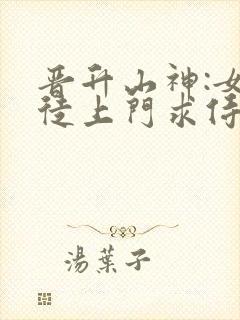 晋升山神:女
徒上門求侍
湯葉子